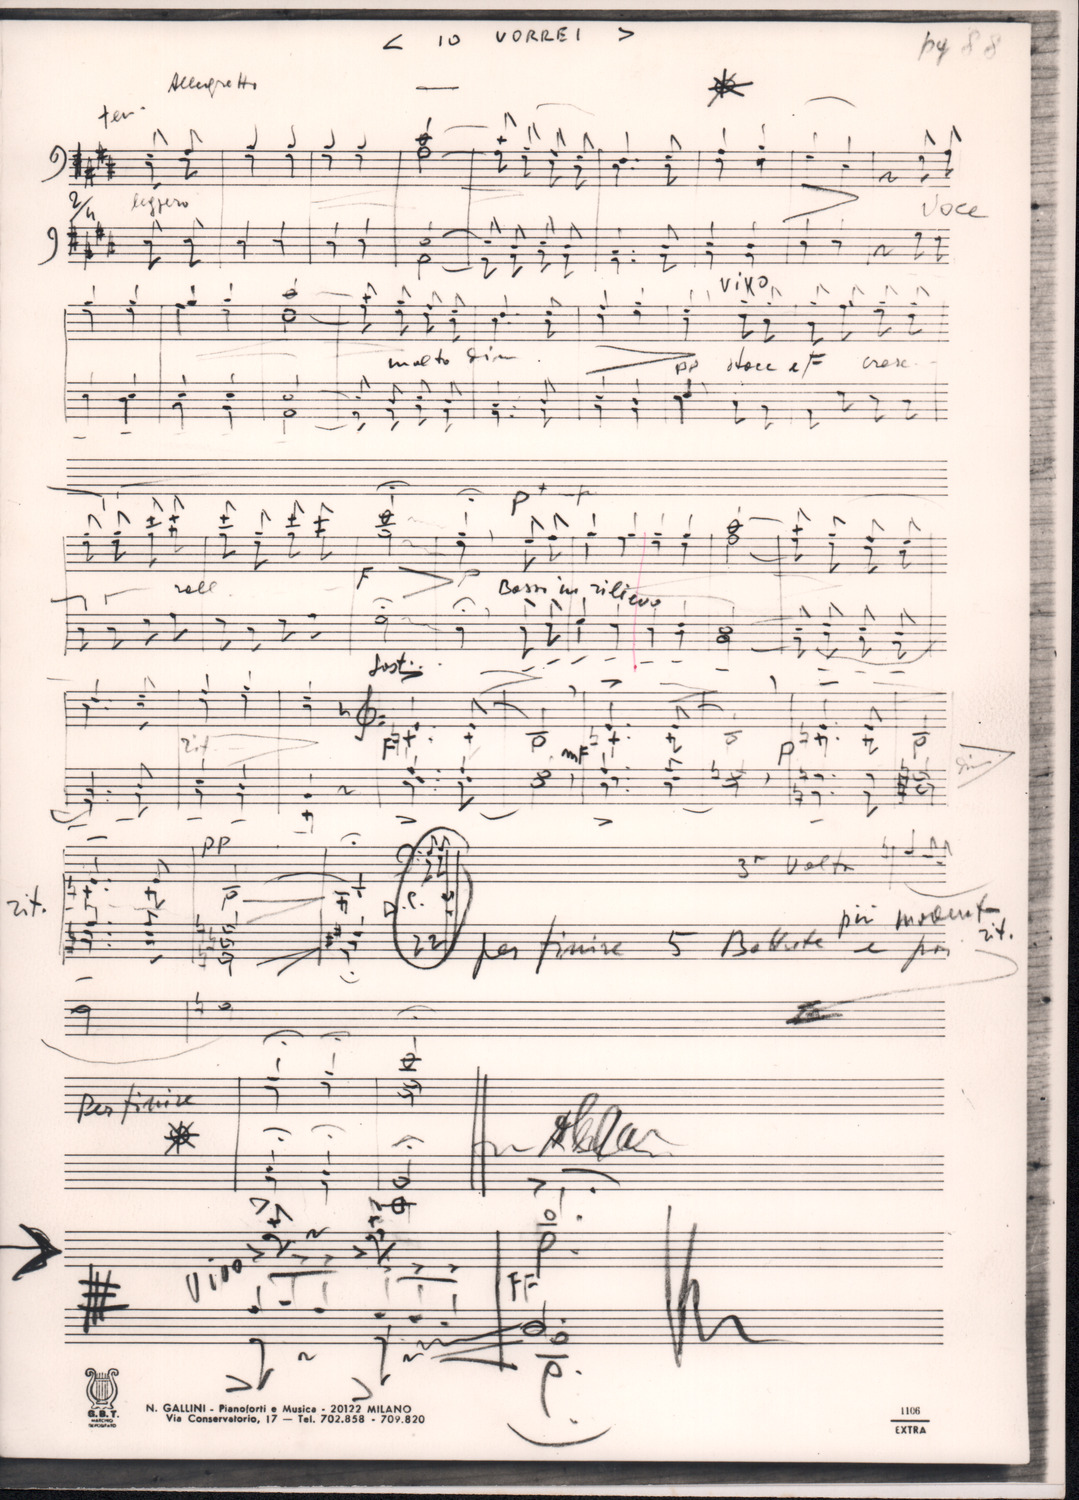 < IO VORREI >
pg 88
Allegretto
ten
2/4
leggero
Voce
vivo
molto dim.
pp stacc e F cresc.
P
rall.
F P Bassi in rilievo
sost.
rit.
F mF P dim
PP
3ª Volta
rit.
per finire 5 Battute e poi
più moderato
rit.
Per finire
Vivo
FF
G.B.T.
MARCHIO
DEPOSITATO
N. GALLINI - Pianoforti e Musica - 20122 MILANO
Via Conservatorio, 17 — Tel. 702.858 - 709.820
1106
EXTRA